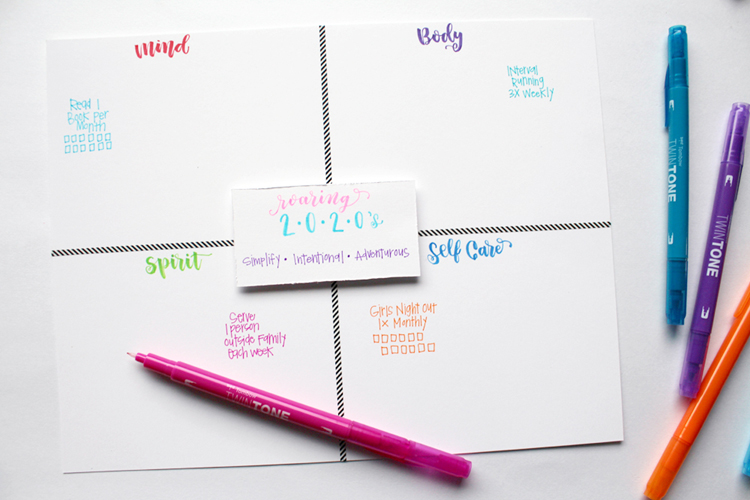 mind
Read 1
Book Per
Month
Body
Interval
Running
3X Weekly
roaring
2•0•2•0's
Simplify • Intentional • Adventurous
spirit
Serve
1 person
outside Family
each week
Self Care
Girls Night Out
1X Monthly
TWINTONE
TWINTONE
TWINTONE